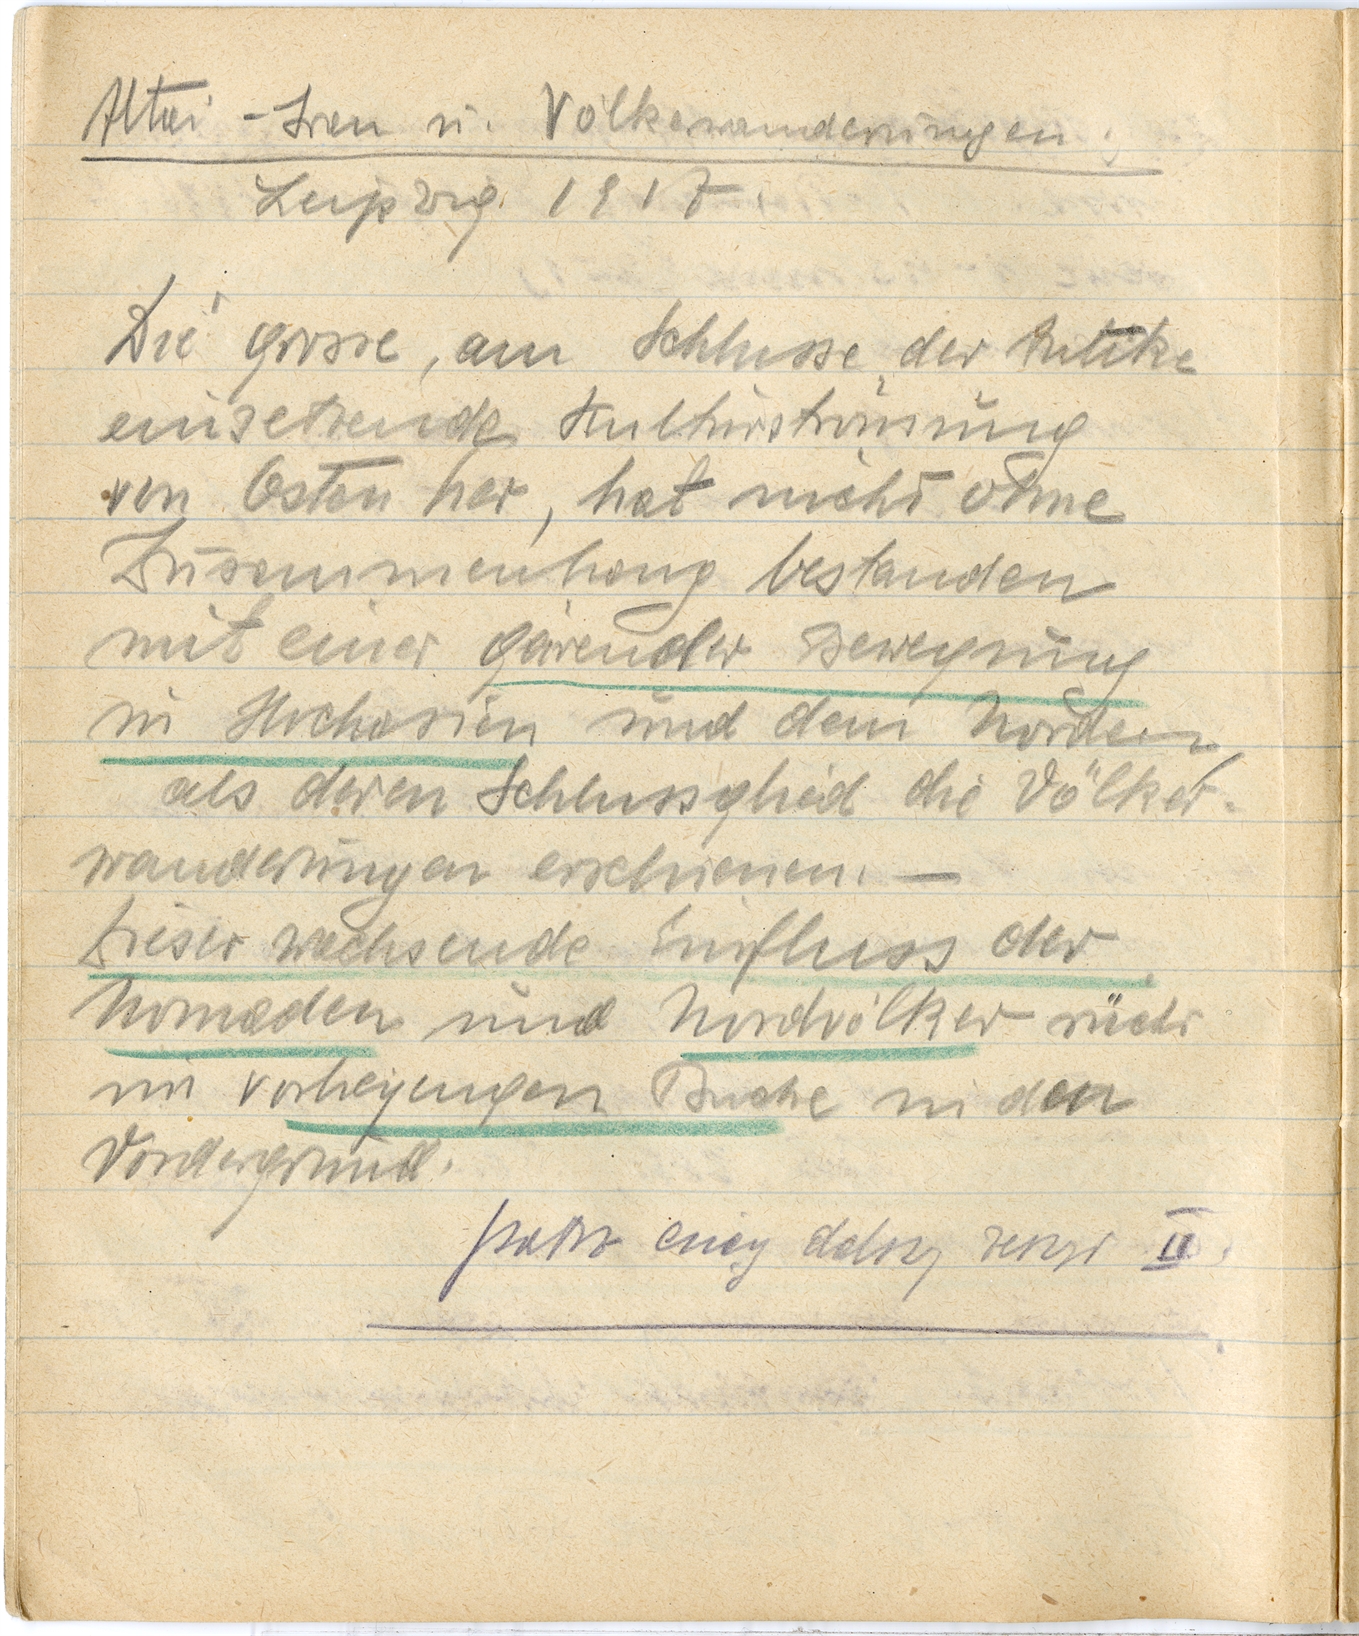 Altai - Iran u. Völkerwanderungen.
Leipzig. 1917.
Die grosse, am Schlusse der Antike
einsetzende Kulturströmung
von Osten her, hat nicht ohne
Zusammenhang bestanden
mit einer gärender Bewegung
in Hochasien und dem Norden,
als deren Schlussglied die Völker-
wanderungen erschienen. —
Dieser wachsende Einfluss der
Nomaden und Nordvölker rückt
im vorliegengen Buche in den
Vordergrund.
patrz ciąg dalszy zeszyt II.